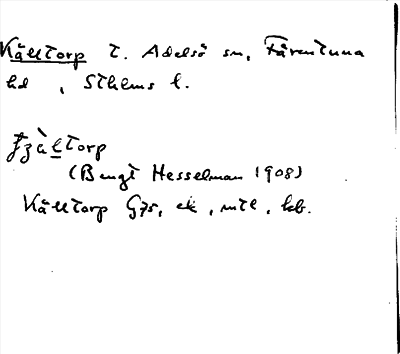 Källtorp t. Adelsö sn, Färentuna
hd , Sthlms l.
(Bengt Hesselman 1908)
Källtorp Gjs, ek , mtl , kb.